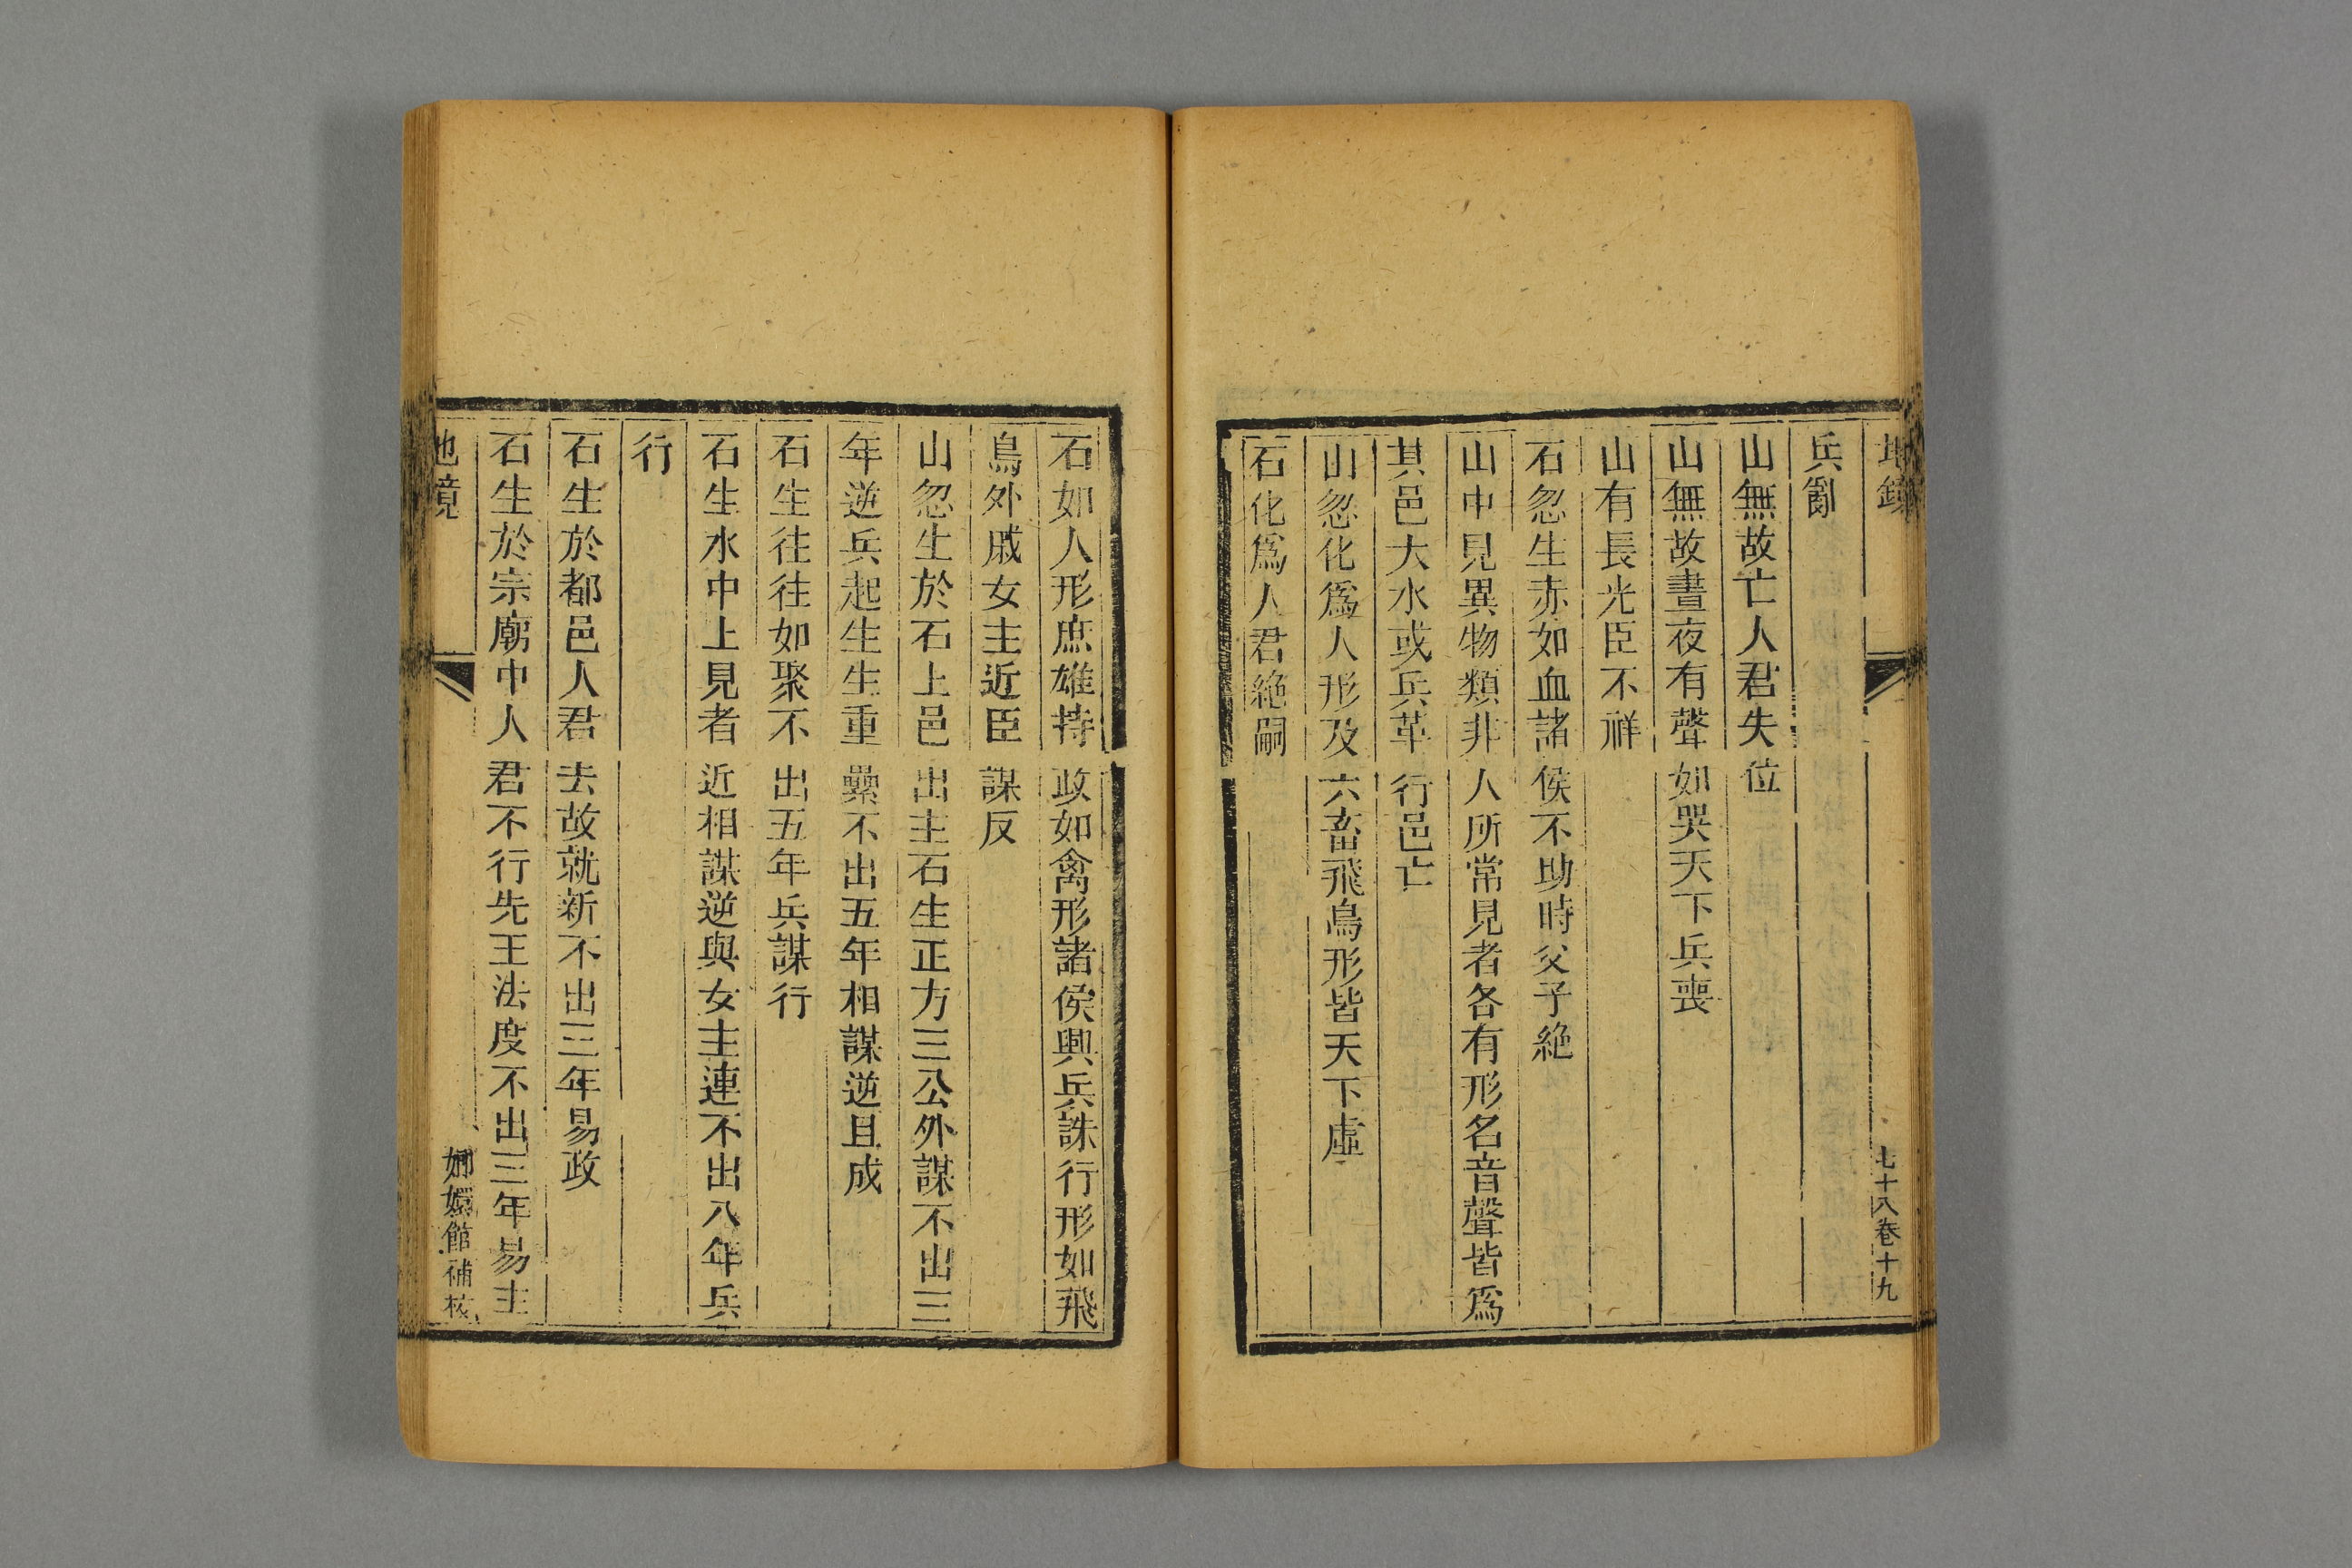 地鏡
七十八卷十九
兵亂
山無故亡人君失位
山無故晝夜有聲如哭天下兵喪
山有長光臣不祥
石忽生赤如血諸侯不助時父子絶
山中見異物類非人所常見者各有形名音聲皆爲
其邑大水或兵革行邑亡
山忽化爲人形及六畜飛鳥形皆天下虛
石化爲人君絶嗣
石如人形庶雄持政如禽形諸侯興兵誅行形如飛
鳥外戚女主近臣謀反
山忽生於石上邑出主石生正方三公外謀不出三
年逆兵起生生重纍不出五年相謀逆且成
石生往往如聚不出五年兵謀行
石生水中上見者近相謀逆與女主連不出八年兵
行
石生於都邑人君去故就新不出三年易政
石生於宗廟中人君不行先王法度不出三年易主
地鏡
嫏嬛館補校